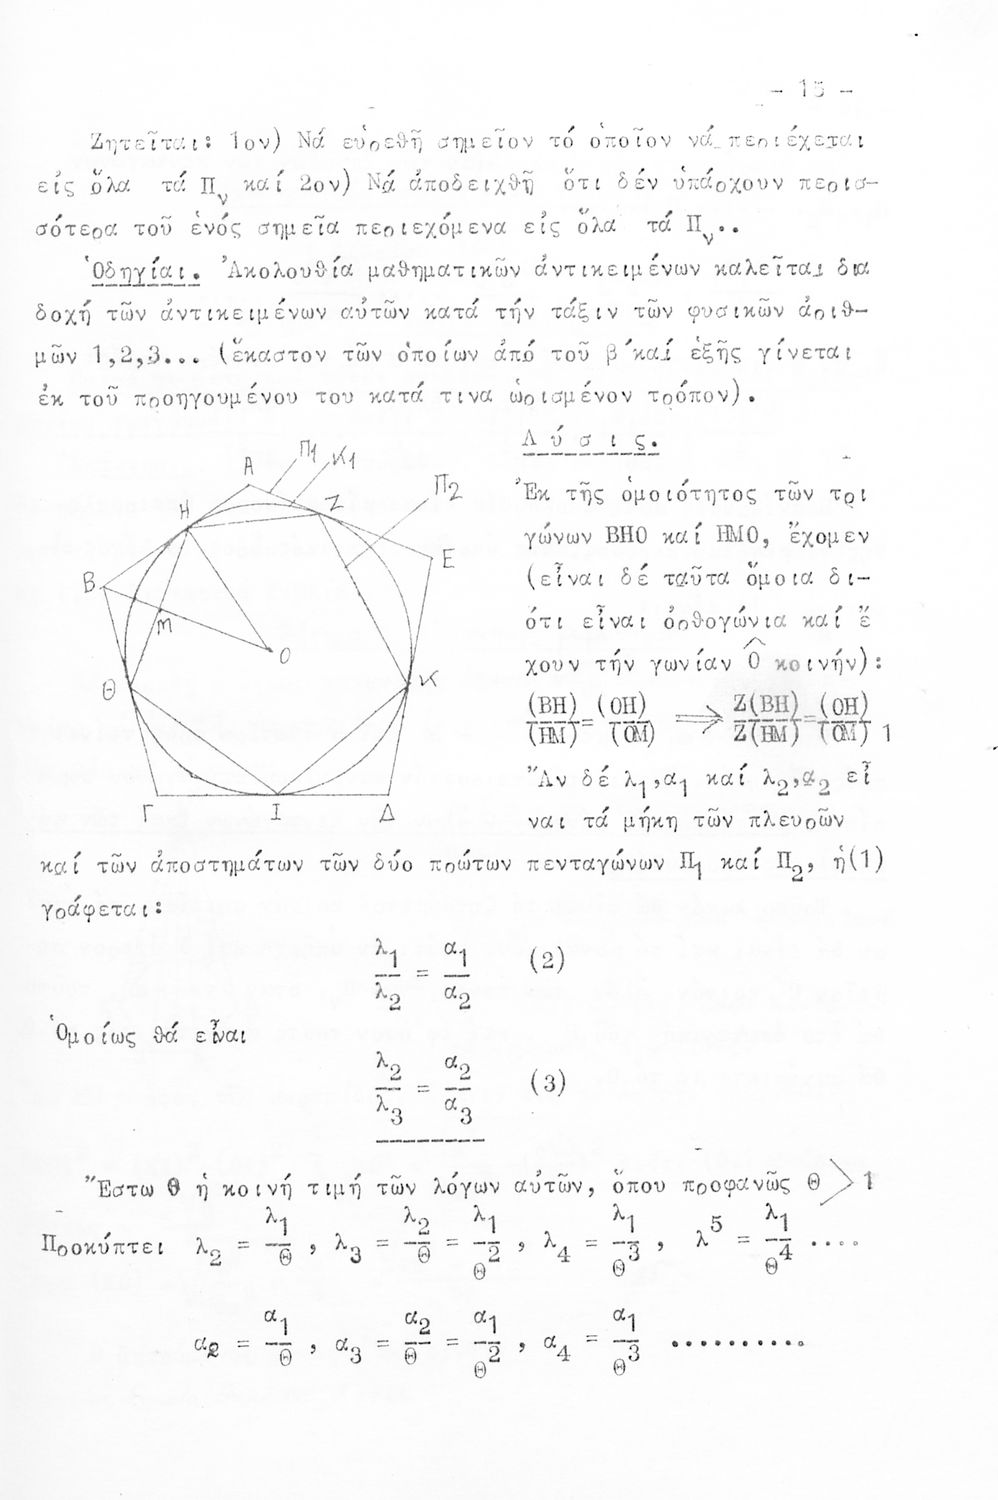 - 15 -
Ζητεῖται: 1ον) Νά εὑρεθῇ σημεῖον τό ὁποῖον νά περιέχεται
εἰς ὅλα τά Πν καί 2ον) Νά ἀποδειχθῇ ὅτι δέν ὑπάρχουν περισ-
σότερα τοῦ ἑνός σημεῖα περιεχόμενα εἰς ὅλα τά Πν..
Ὁδηγίαι. Ἀκολουθία μαθηματικῶν ἀντικειμένων καλεῖται δια
δοχή τῶν ἀντικειμένων αὐτῶν κατά τήν τάξιν τῶν φυσικῶν ἀριθ-
μῶν 1,2,3... (ἕκαστον τῶν ὁποίων ἀπό τοῦ β΄καί ἑξῆς γίνεται
ἐκ τοῦ προηγουμένου του κατά τινα ὡρισμένον τρόπον).
Λύσις.
Π1 Κ1
Α
Π2
Η Ζ
Ε
Β
Μ
Ο
Θ Κ
Γ Ι Δ
Ἐκ τῆς ὁμοιότητος τῶν τρι
γώνων ΒΗΟ καί ΗΜΟ, ἔχομεν
(εἶναι δέ ταῦτα ὅμοια δι-
ότι εἶναι ὀρθογώνια καί ἔ
χουν τήν γωνίαν Ô κοινήν):
(ΒΗ)/(ΗΜ) = (ΟΗ)/(ΟΜ) ⟹ Ζ(ΒΗ)/Ζ(ΗΜ) = (ΟΗ)/(ΟΜ) 1
Ἄν δέ λ₁,α₁ καί λ₂,α₂ εἶ
ναι τά μήκη τῶν πλευρῶν
καί τῶν ἀποστημάτων τῶν δύο πρώτων πενταγώνων Π₁ καί Π₂, ἡ(1)
γράφεται:
λ₁/λ₂ = α₁/α₂ (2)
Ὁμοίως θά εἶναι
λ₂/λ₃ = α₂/α₃ (3)
Ἔστω Θ ἡ κοινή τιμή τῶν λόγων αὐτῶν, ὅπου προφανῶς Θ > 1
Προκύπτει λ₂ = λ₁/Θ , λ₃ = λ₂/Θ = λ₁/Θ² , λ₄ = λ₁/Θ³ , λ⁵ = λ₁/Θ⁴ ....
α₂ = α₁/Θ , α₃ = α₂/Θ = α₁/Θ² , α₄ = α₁/Θ³ ..........